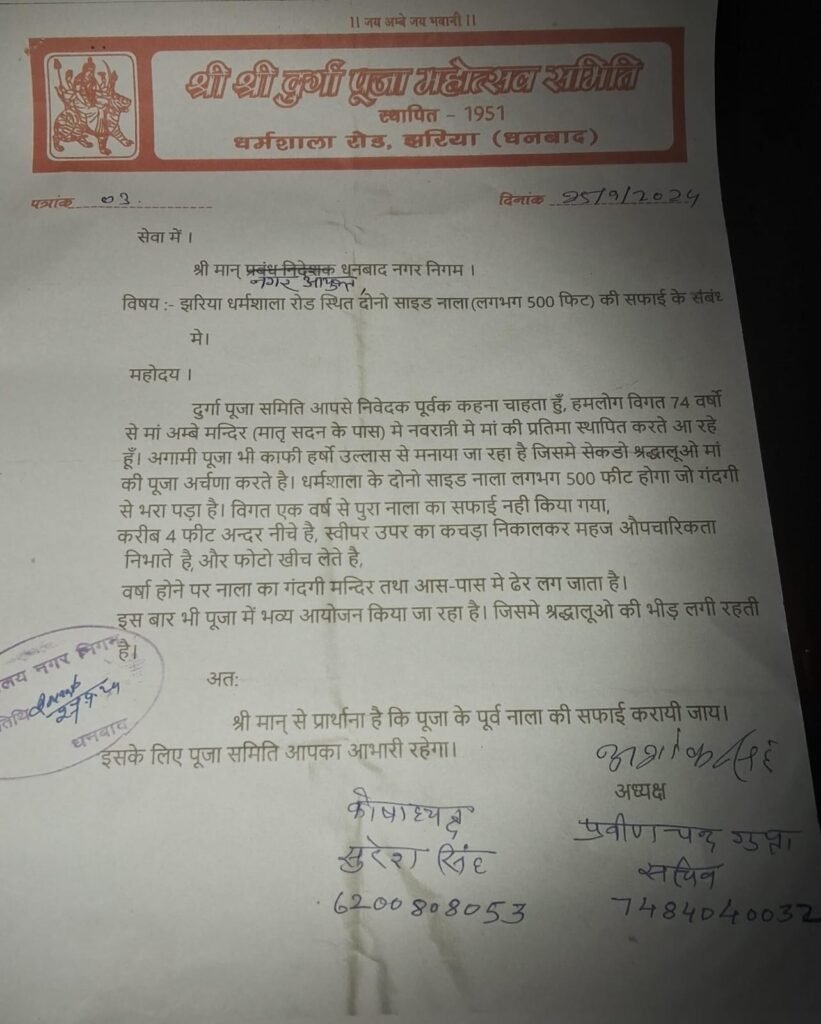 ।। जय अम्बे जय भवानी ।।
श्री श्री दुर्गा पूजा महोत्सव समिति
स्थापित - 1951
धर्मशाला रोड, झरिया (धनबाद)
पत्रांक 03. दिनांक 25/9/2024
सेवा में ।
श्री मान् प्रबंध निदेशक धनबाद नगर निगम ।
नगर आयुक्त,
विषय :- झरिया धर्मशाला रोड स्थित दोनो साइड नाला (लगभग 500 फिट) की सफाई के संबंध
मे।
महोदय ।
दुर्गा पूजा समिति आपसे निवेदक पूर्वक कहना चाहता हुँ, हमलोग विगत 74 वर्षो
से मां अम्बे मन्दिर (मातृ सदन के पास) मे नवरात्री मे मां की प्रतिमा स्थापित करते आ रहे
हूँ। अगामी पूजा भी काफी हर्षो उल्लास से मनाया जा रहा है जिसमे सेकडो श्रद्धालूओ मां
की पूजा अर्चणा करते है। धर्मशाला के दोनो साइड नाला लगभग 500 फीट होगा जो गंदगी
से भरा पड़ा है। विगत एक वर्ष से पुरा नाला का सफाई नही किया गया,
करीब 4 फीट अन्दर नीचे है, स्वीपर उपर का कचड़ा निकालकर महज औपचारिकता
निभाते है, और फोटो खीच लेते है,
वर्षा होने पर नाला का गंदगी मन्दिर तथा आस-पास मे ढेर लग जाता है।
इस बार भी पूजा में भव्य आयोजन किया जा रहा है। जिसमे श्रद्धालूओ की भीड़ लगी रहती
है।
अत:
श्री मान् से प्रार्थाना है कि पूजा के पूर्व नाला की सफाई करायी जाय।
इसके लिए पूजा समिति आपका आभारी रहेगा।
अध्यक्ष
कोषाध्यक्ष
सुरेश सिंह
6200808053
प्रवीण चन्द्र गुप्ता
सचिव
7484040032
लय नगर निगम
तिथि
27.9.24
धनबाद